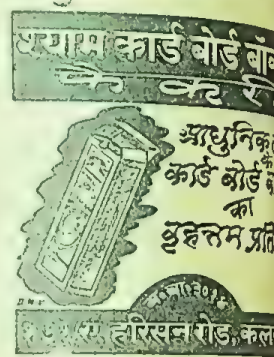 श्याम कार्ड बोर्ड बॉक
के क र
आधुनिक
कार्ड बोर्ड ब
का
बृहत्तम प्रति
हरिसन रोड, कल